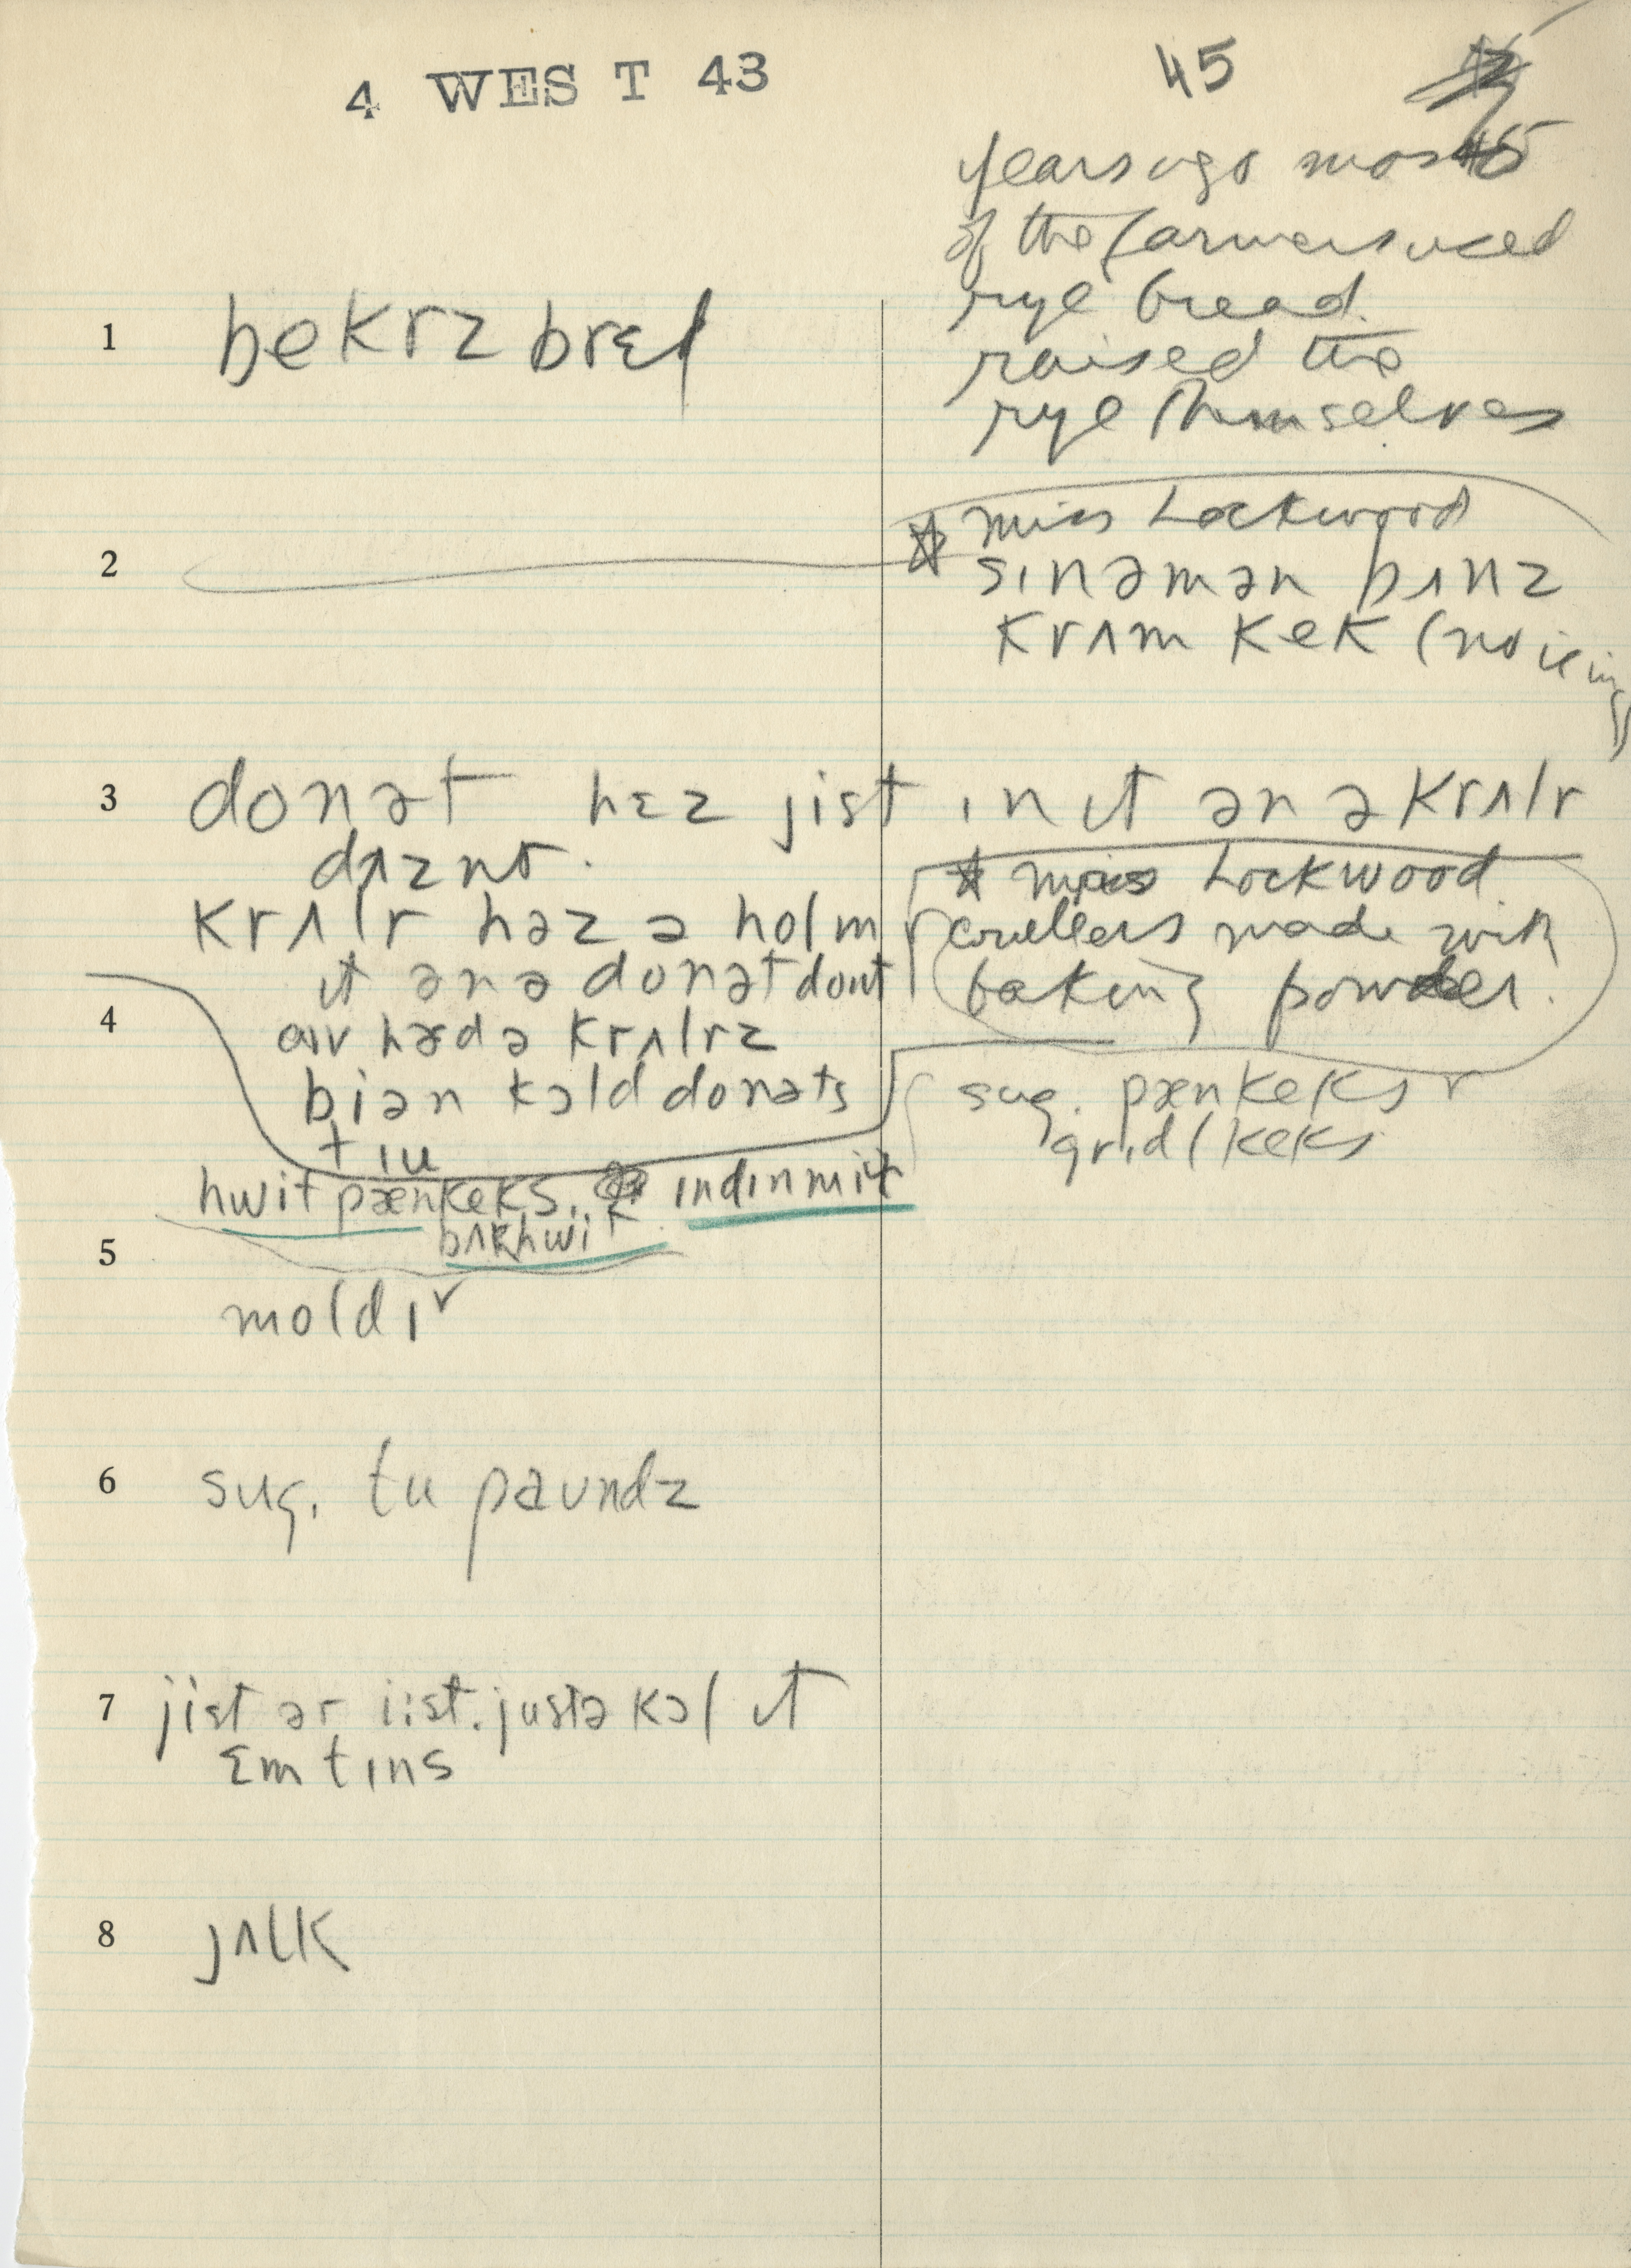 4 WEST 43
45
45
years ago most
of the farmers used
rye bread.
raised the
rye themselves
1 bekrz brɛd
2
☆ Miss Lockwood
sɪnəmən bʌnz
krʌm kek (no icing)
3 donət hɛz jist ɪn ɪt ən ə krʌlr
dʌznt.
krʌlr həz ə hol ɪn
ɪt ən ə donət dont
☆ Miss Lockwood
crullers made with
baking powder.
4
aɪv hæd ə krʌlrz
biən kɔld donəts
tɪu
sug. pænkeks ✓
grɪdl keks
hwit pænkeks. ɪndɪn mil
bʌkhwit
5
moldɪ ✓
6 sug. tu paundz
7 jist ər iist. justə kɔl ɪt
ɛmtɪns
8 jʌlk